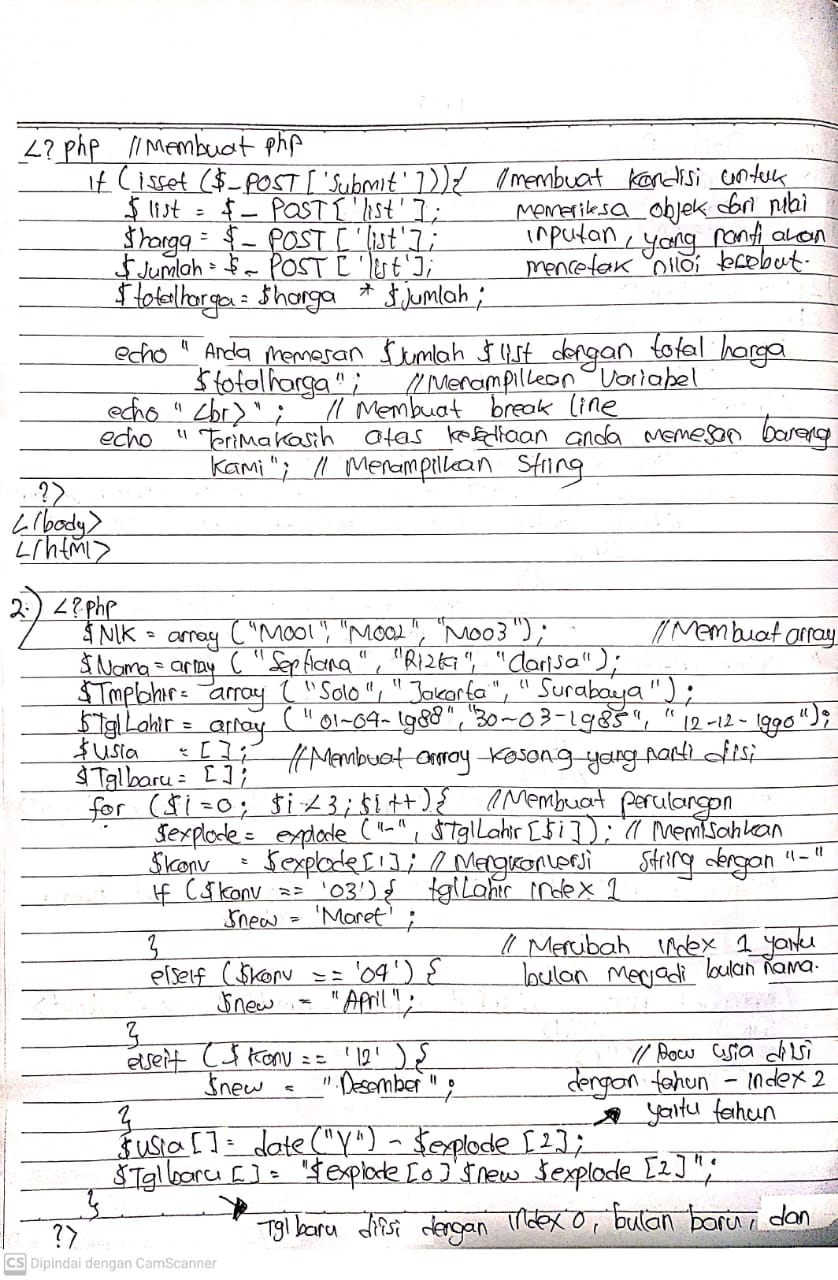 <?php //Membuat php
if (isset ($_POST ['Submit'])){ //membuat kondisi untuk
$list = $_POST['list']; memeriksa objek dari nilai
$harga = $_POST['list']; inputan, yang nanti akan
$Jumlah = $_POST['list']; mencetak nilai tersebut.
$totalharga = $harga * $jumlah;
echo " Anda memesan $Jumlah $list dengan total harga
$totalharga"; //Menampilkan Variabel
echo "<br>"; // Membuat break line
echo "Terimakasih atas kesediaan anda memesan barang
kami"; // Menampilkan String
?>
</body>
</html>
2.) <?php
$NIK = array ("M001", "M002", "M003"); //Membuat array
$Nama = array ("Septiana", "Rizki", "clarisa");
$TmpLahir = array ("Solo", "Jakarta", "Surabaya");
$TglLahir = array ("01-04-1988", "30-03-1985", "12-12-1990");
$usia = []; //Membuat array kosong yang nanti diisi
$Tglbaru = [];
for ($i=0; $i<3; $i++){ //Membuat perulangan
$explode = explode ("-", $TglLahir[$i]); // Memisahkan
$konv = $explode[1]; // Mengkonversi String dengan "-"
if ($konv == '03'){ tglLahir index 1
$new = 'Maret';
} // Merubah index 1 yaitu
elseif ($konv == '04') { bulan menjadi bulan nama.
$new = "April";
}
elseif ($konv == '12') { // Row usia diisi
$new = "Desember"; dengan tahun - index 2
} yaitu tahun
$usia [] = date("Y") - $explode [2];
$Tglbaru [] = "$explode [0] $new $explode [2]";
}
?> Tgl baru diisi dengan index 0, bulan baru, dan
CS Dipindai dengan CamScanner